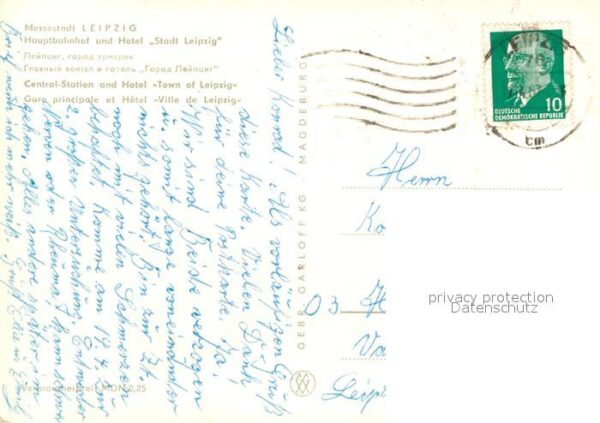 Messestadt LEIPZIG
Hauptbahnhof und Hotel „Stadt Leipzig"
Лейпциг, город ярмарок
Главный вокзал и готель „Город Лейпциг"
Central-Station and Hotel «Town of Leipzig»
Gare principale et Hôtel «Ville de Leipzig»
Verbraucherpreis MDN 0,25
GEBR. GARLOFF KG · MAGDEBURG
Lieber Konrad! Als vorläufigen Gruß
diese Karte. Vielen Dank
für deine Postkarte. Ja,
Wir sind Beide verzogen
u. somit lange voneinander
nichts gehört. Bin zur Zt.
noch mit vielen Schmerzen
Komme am 19.4. zur
2. großen Untersuchung.
Nerven oder Rheuma
Alles andere später
10
DEUTSCHE
DEMOKRATISCHE REPUBLIK
tm
Herrn
Ko
03 H
Va
Leip
privacy protection
Datenschutz